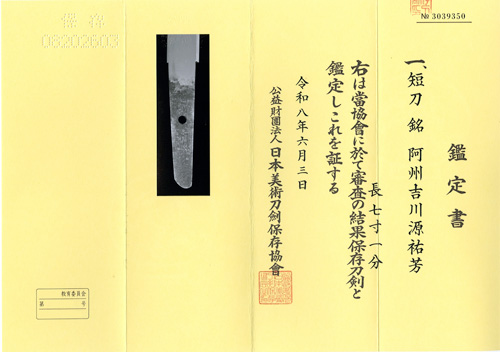 № 3039350
鑑定書
一、短刀 銘 阿州吉川源祐芳
長七寸一分
右は當協會に於て審査の結果保存刀剣と
鑑定しこれを証する
令和八年六月三日
公益財團法人 日本美術刀劍保存協會
保存
08202603
教育委員会
第 号